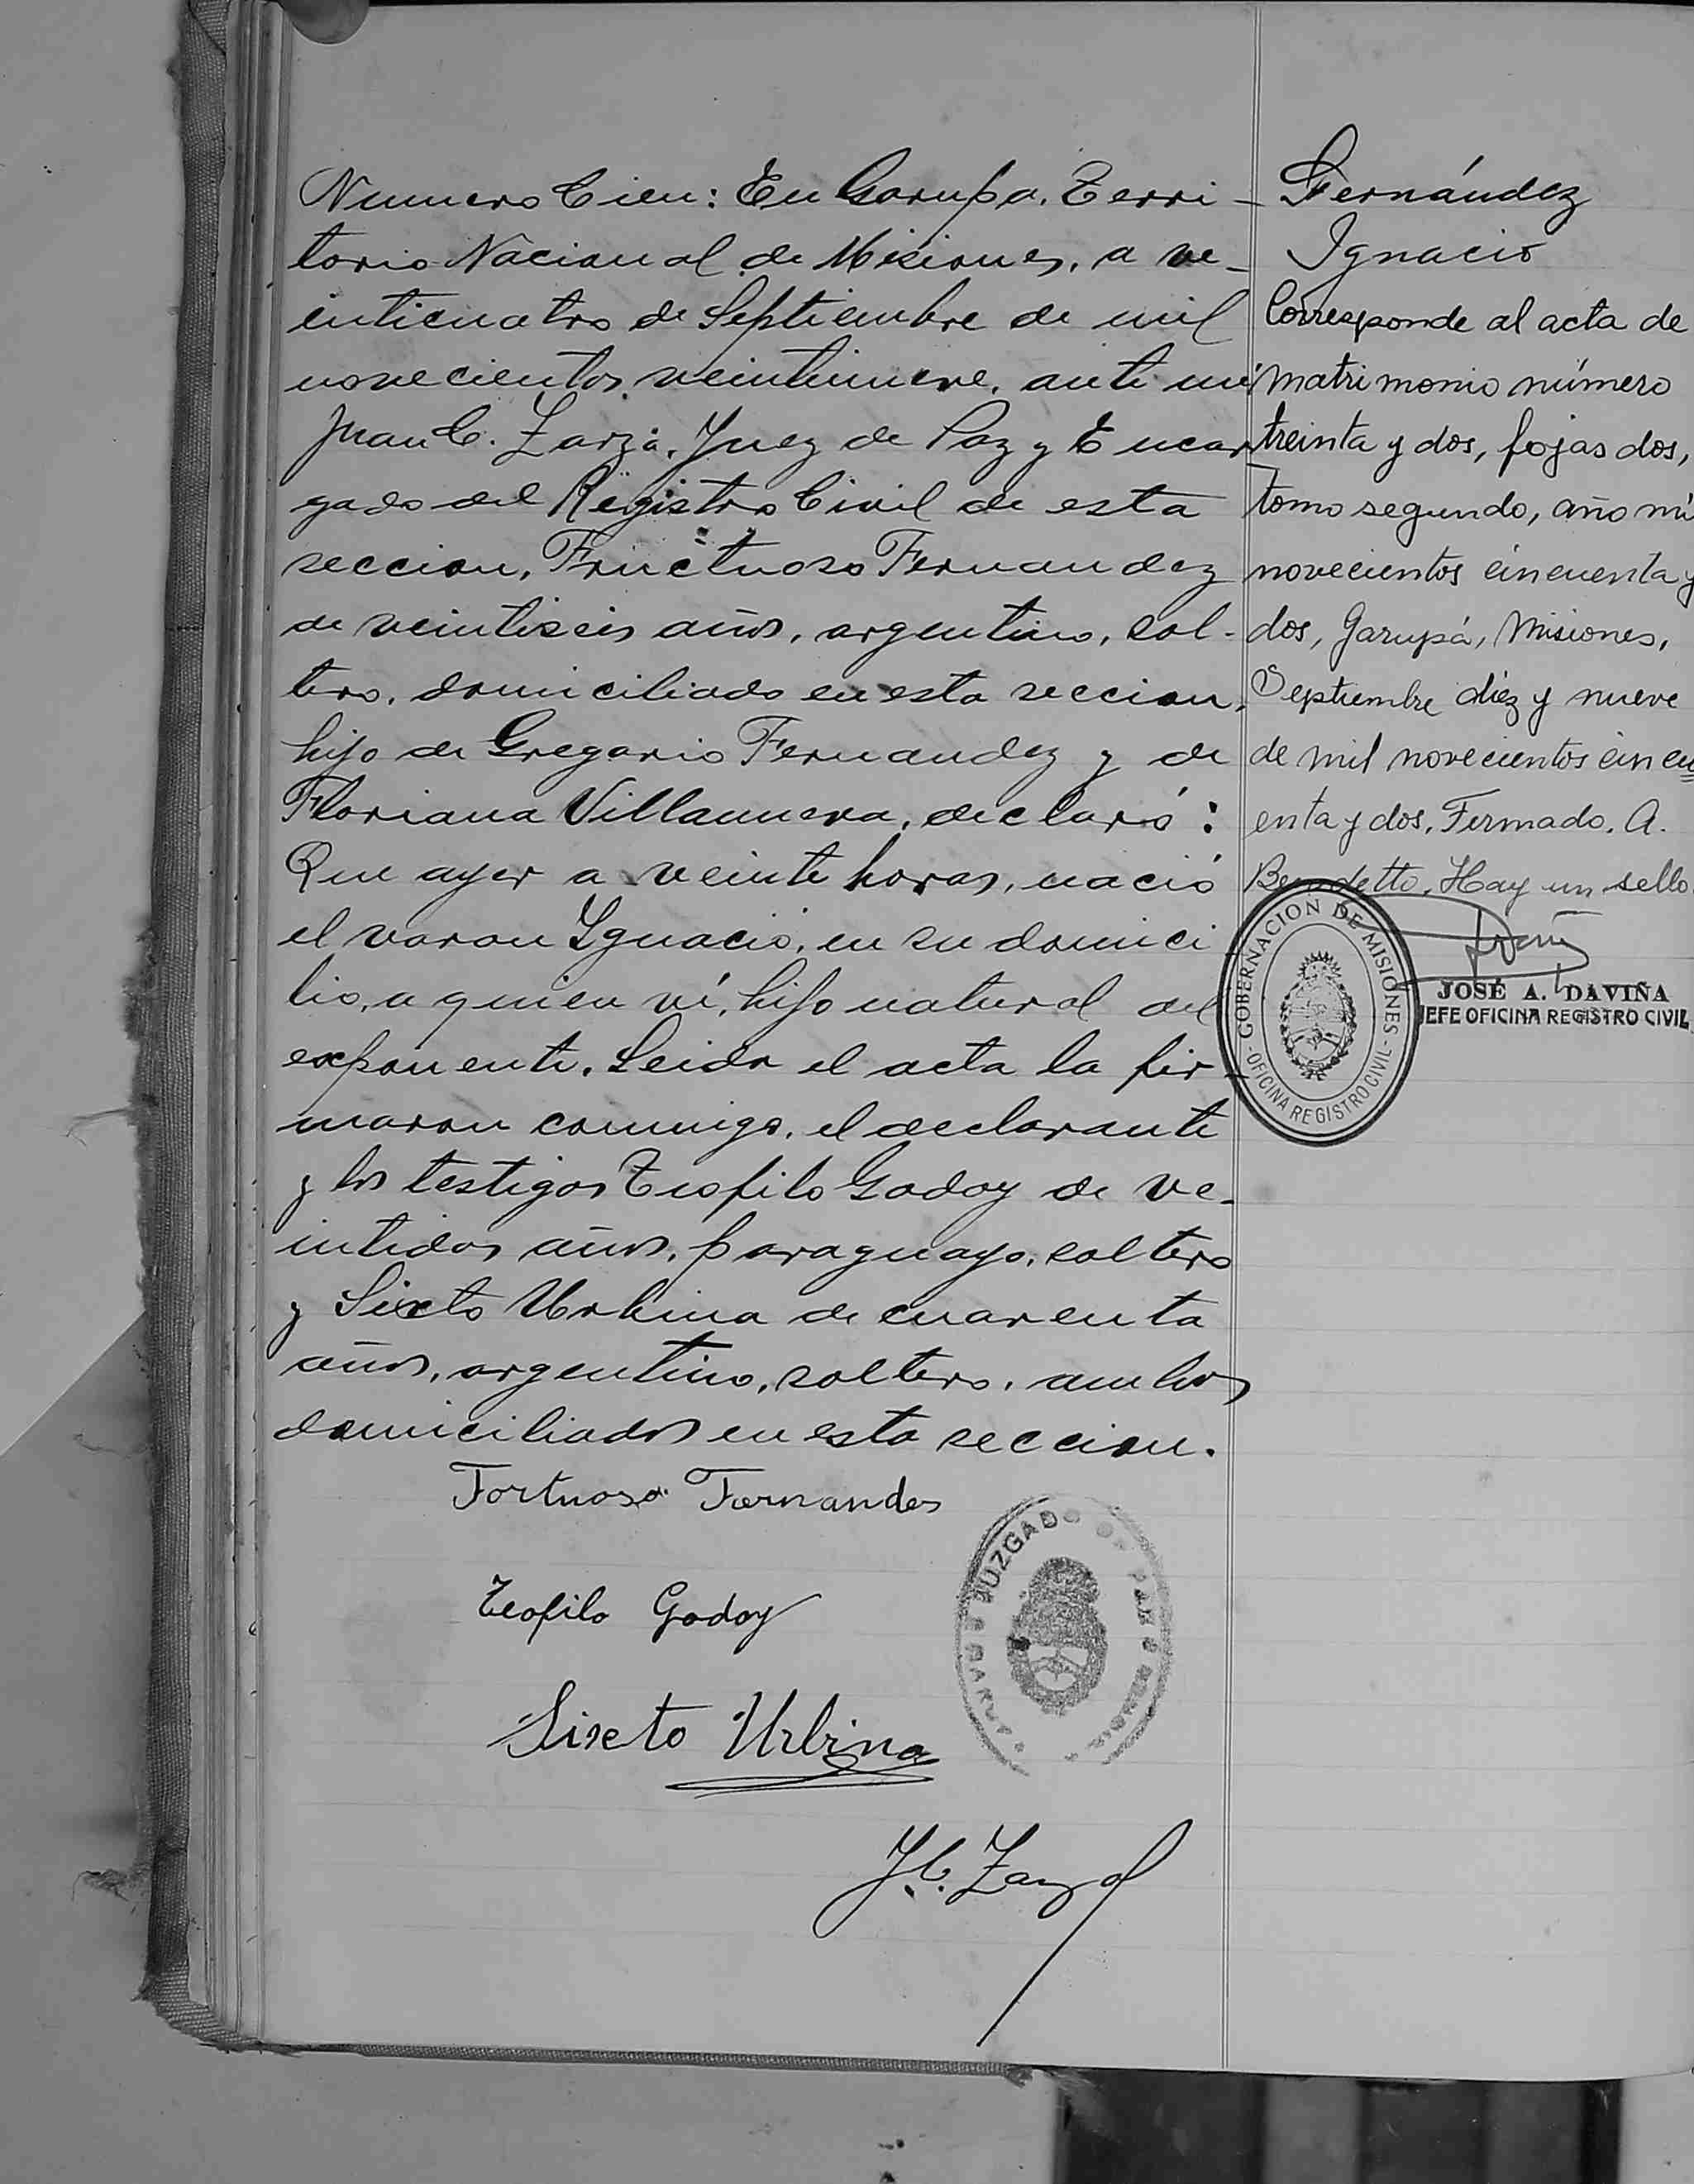 Numero Cien: En Garupa. Terri-
torio Nacional de Misiones, a ve-
inticuatro de Septiembre de mil
novecientos veintinueve. ante mi
Juan C. Zarza, Juez de Paz y Encar
gado del Registro Civil de esta
seccion, Fructuoso Fernandez
de veintiseis años, argentino, sol-
tero, domiciliado en esta seccion,
hijo de Gregorio Fernandez y de
Floriana Villanueva, declaró:
Que ayer a veinte horas, nació
el varon Ignacio, en su domici
lio, a quien ví, hijo natural del
exponente. Leida el acta la fir-
maron conmigo, el declarante
y los testigos Teofilo Godoy de ve-
intidos años, paraguayo, soltero
y Sixto Urbina de cuarenta
años, argentino, soltero, ambos
domiciliados en esta seccion.
Fortuoso Fernandes
Teofilo Godoy
Sixto Urbina
J.C. Zarza
JUZGADO DE PAZ
GARUPA
Fernández
Ignacio
Corresponde al acta de
matrimonio número
treinta y dos, fojas dos,
tomo segundo, año mi
novecientos cincuenta y
dos, Garupá, Misiones,
Septiembre diez y nueve
de mil novecientos cincu
enta y dos, Firmado. A.
Benedetto, Hay un sello.
GOBERNACION DE MISIONES
- OFICINA REGISTRO CIVIL -
JOSÉ A. DAVIÑA
JEFE OFICINA REGISTRO CIVIL